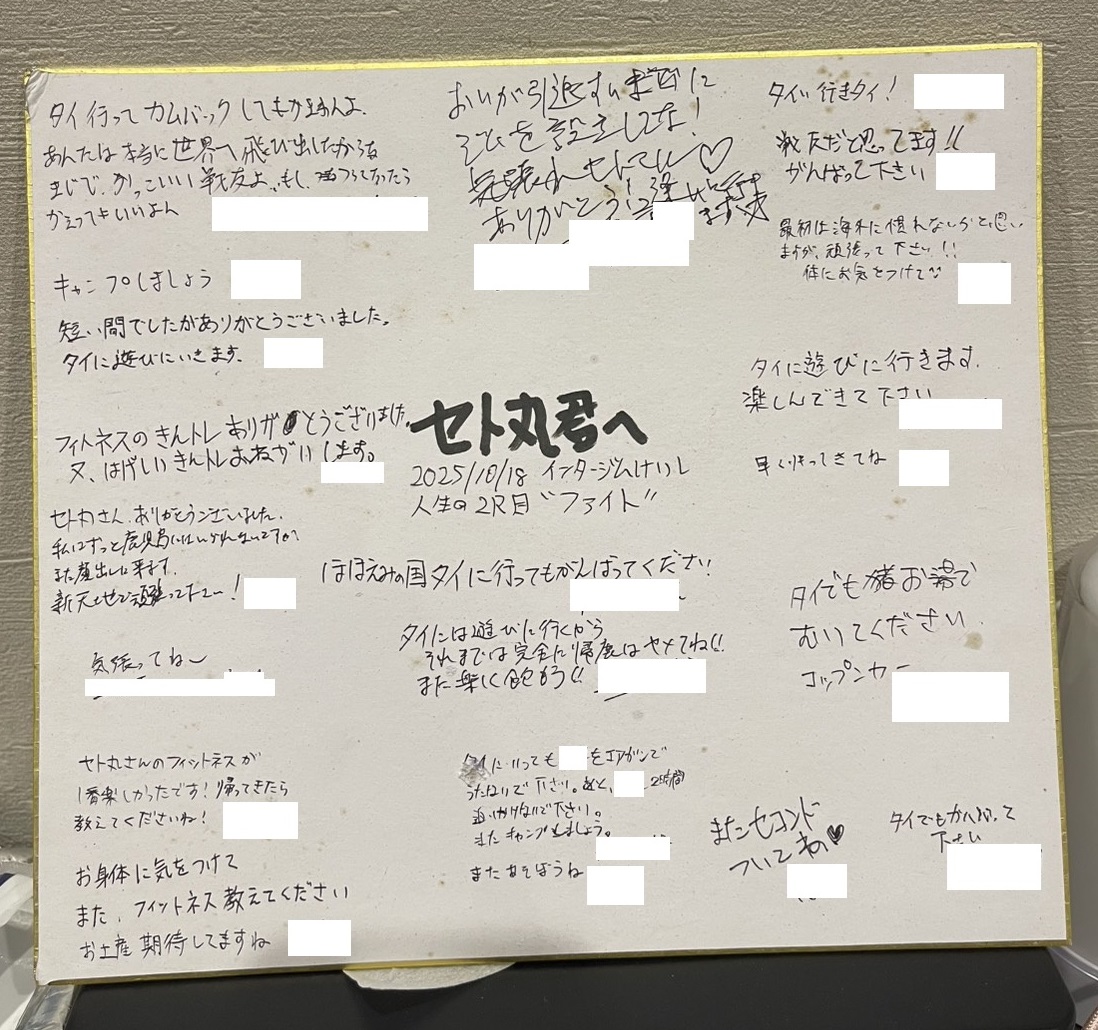 タイ行ってカムバックしても
あんたは本当に世界へ飛び出したから
まじでかっこいい戦友よ。もし、
かえってきいいよん
キャンプしましょう
短い間でしたがありがとうございました。
タイに遊びにいきます。
フィトネスのきんトレありがとうございました
又、はげしいきんトレおねがいします。
セト丸さん、ありがとうございました。
また顔出しに来ます。
新天地で頑張って
気張ってね〜
セト丸さんのフィットネスが
1番楽しかったです!帰ってきたら
教えてくださいね!
お身体に気をつけて
また、フィットネス教えてください
お土産期待してますね
おいが引退する
ジムを設立してな!
気張れセト丸♡
ありがとう!
セト丸君へ
2025/10/18 インタージムけいし
人生の2R目“ファイト”
ほほえみの国タイに行ってもがんばってください
タイには遊びに行くから
それまでは完全に帰鹿はヤメてね!!
また楽しく飲もう!!
タイにいっても をエアガンで
うたないで下さい。あと、 2時間
追いかけないで下さい。
またキャンプしましょう。
またあそぼうね
タイに行きタイ!
戦友だと思ってます!!
がんばって下さい
最初は海外に慣れないかと思い
ますが、頑張って下さい!!
体にお気をつけて
タイに遊びに行きます。
楽しんできて下さい
早くかってきてね
タイでも猪お湯で
むいてください。
コップンカー
またセコンド
ついてね♥
タイでもがんばって
下さい